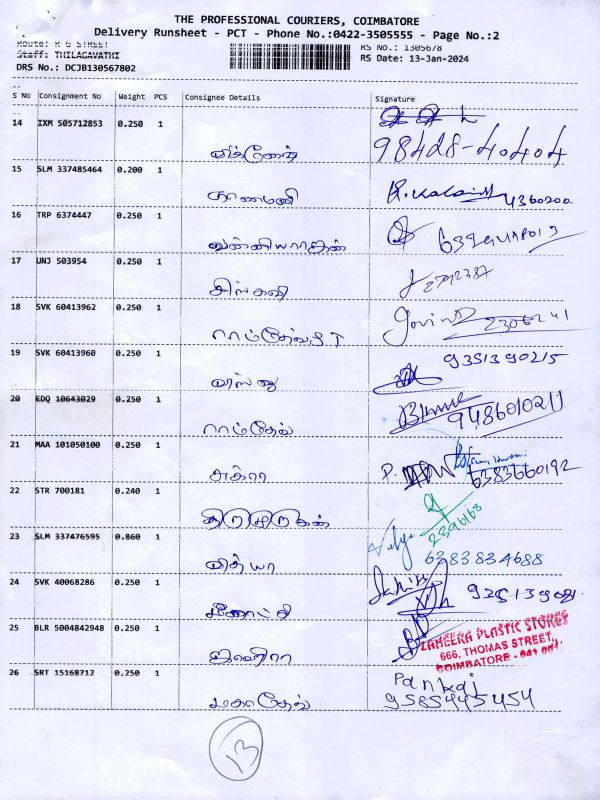 THE PROFESSIONAL COURIERS, COIMBATORE
Delivery Runsheet - PCT - Phone No.:0422-3505555 - Page No.:2
Route: R G STREET
RS No.: 1305678
Staff: THILAGAVATHI
RS Date: 13-Jan-2024
DRS No.: DCJB130567802
S No Consignment No Weight PCS Consignee Details Signature
14 IXM 505712853 0.250 1
98428-40404
15 SLM 337485464 0.200 1
4360200
16 TRP 6374447 0.250 1
17 UNJ 503954 0.250 1
2792387
18 SVK 60413962 0.250 1
Govind 2306241
19 SVK 60413960 0.250 1
9351390215
விஸ்னு
20 EDQ 10643029 0.250 1
ராம்தேவ் 9486010211
21 MAA 101050100 0.250 1
அக்ரா 6383660192
22 STR 700181 0.240 1
திருமுருகன் 2396168
23 SLM 337476595 0.860 1
வித்யா 6383834688
24 SVK 40068286 0.250 1
மீனாட்சி
25 BLR 5004842948 0.250 1
ZAHEERA PLASTIC STORES
666, THOMAS STREET,
COIMBATORE - 641 001.
26 SRT 15168712 0.250 1
Pankaj
மகாதேவ் 9585445454
13